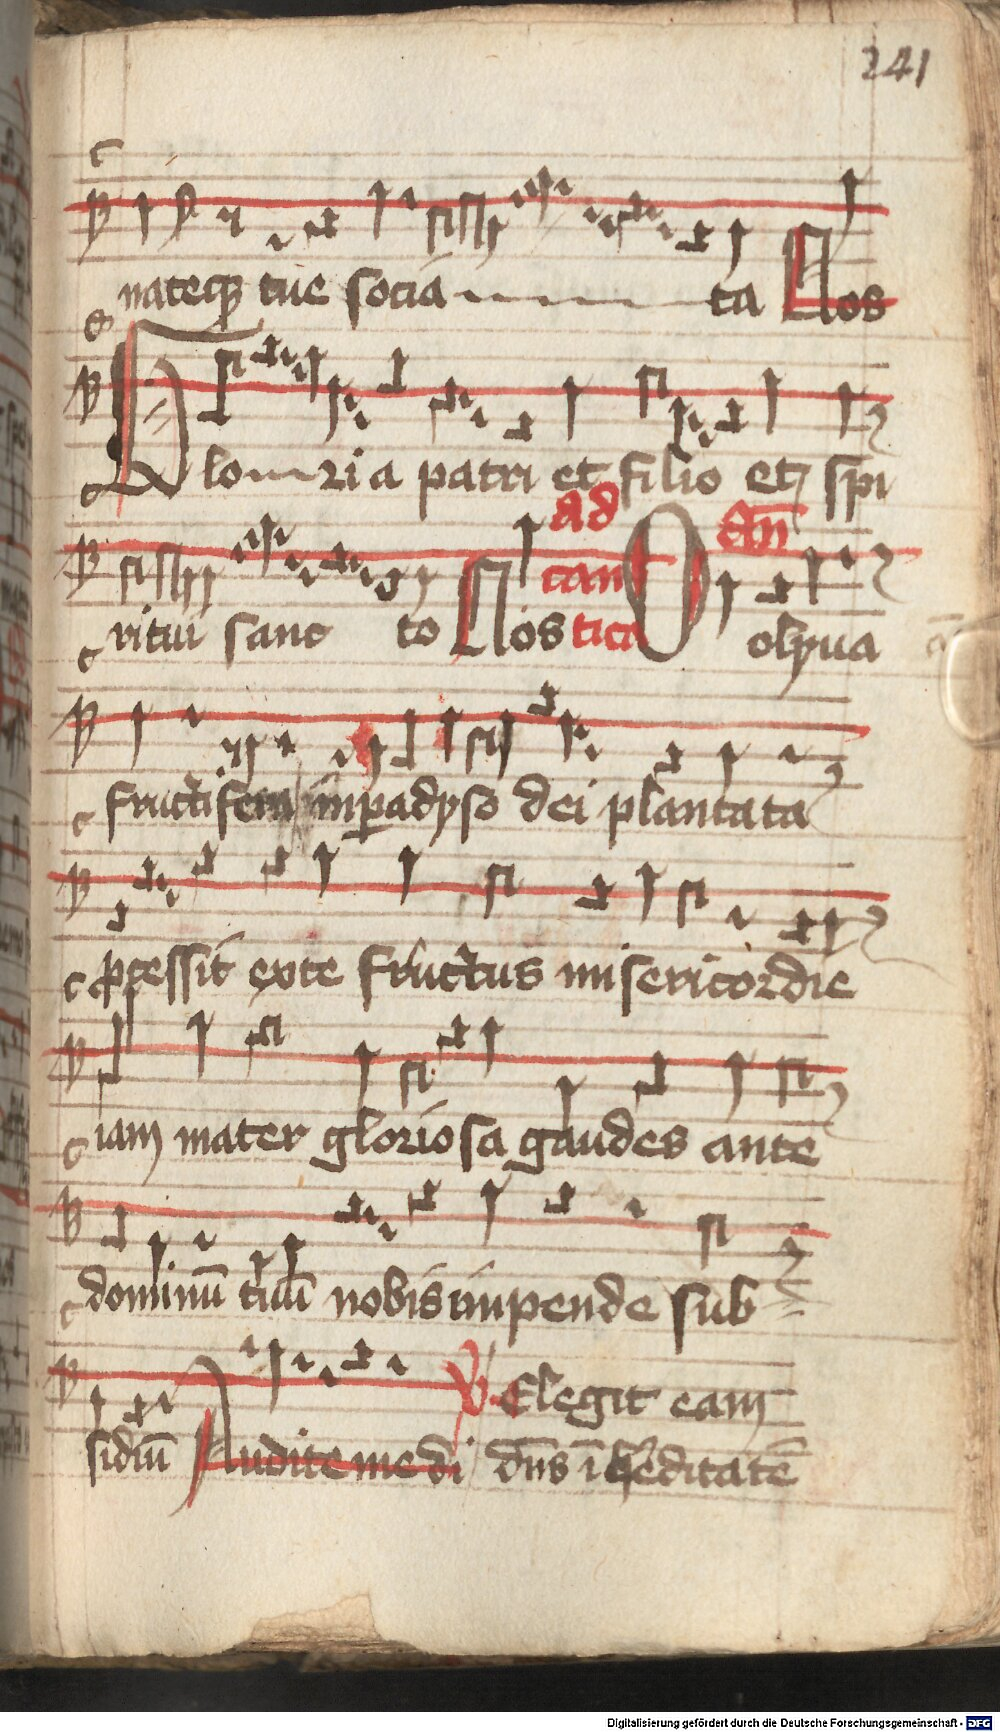 241
nateqꝫ tue socia ta Nos
Gloria patri et filio et spi
ad
ritui sanc to Nos can tica O an̄ olyua
fructifera in paradyso dei plantata
ꝓcessit exte fructus misericordie
iam mater gloriosa gaudes ante
dominū tuū nobis impende sub
sidiū Audite me di ℣ Elegit eam
dn̄s ī hereditatē
Digitalisierung gefördert durch die Deutsche Forschungsgemeinschaft - DFG